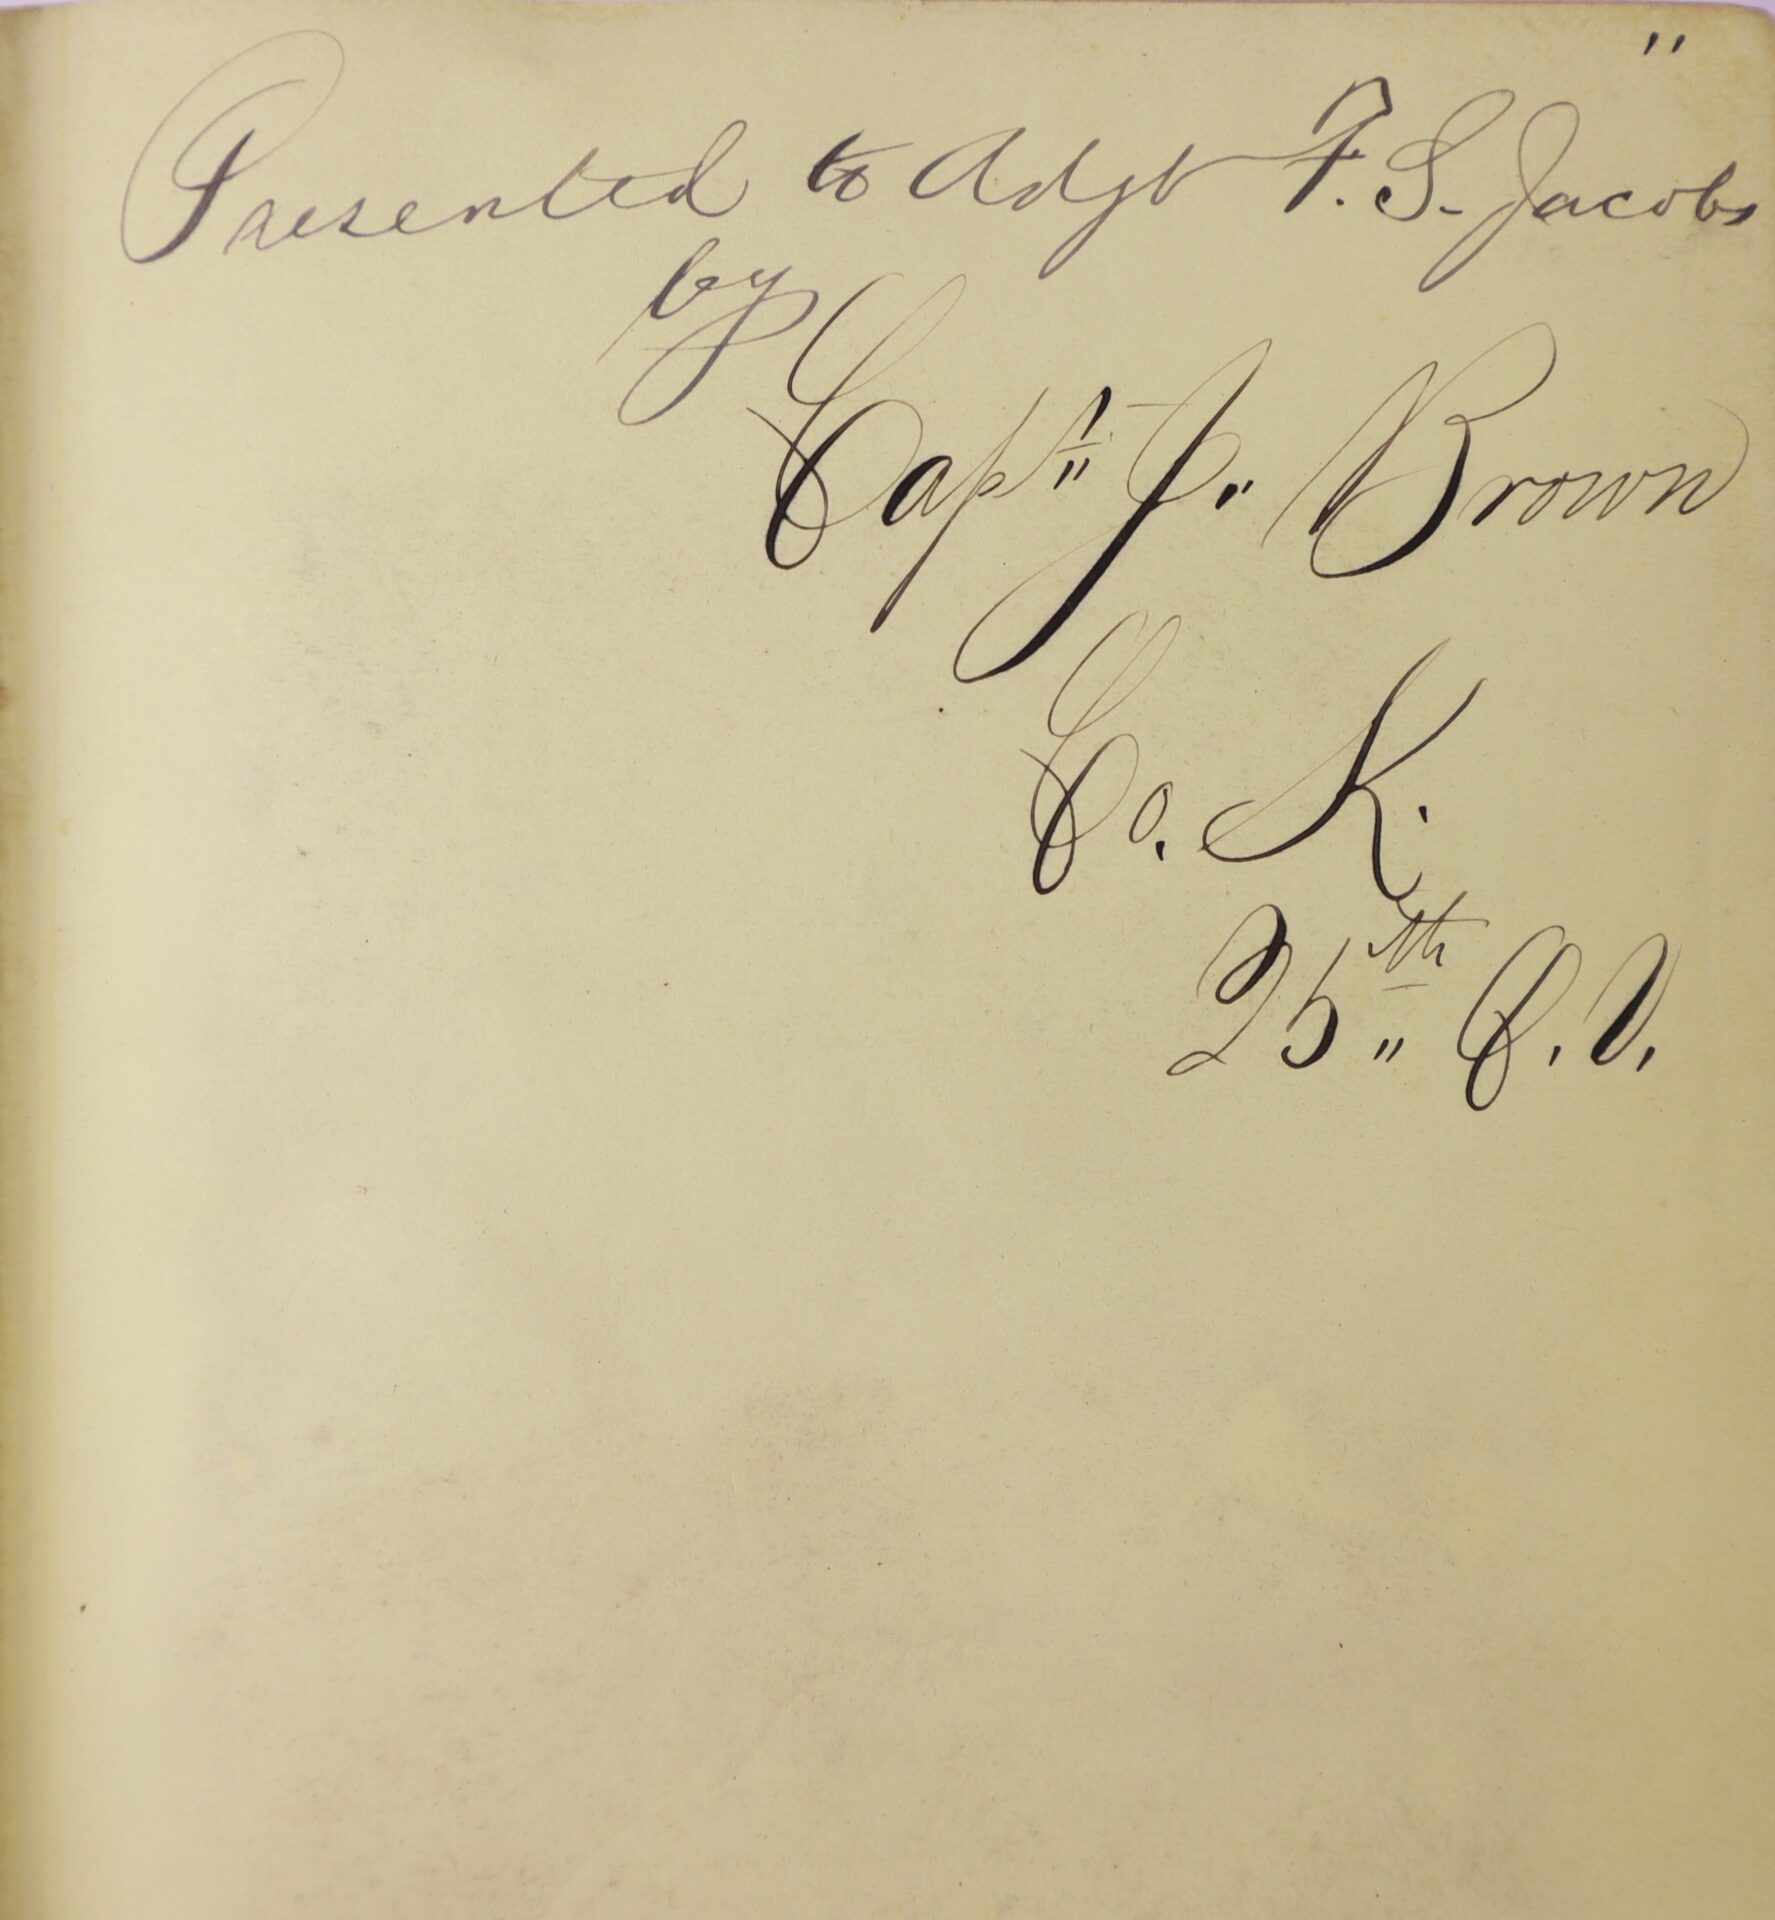 "
Presented to Adjt F. S. Jacobs
by
Capt. J. Brown
Co. K.
25th O.V.